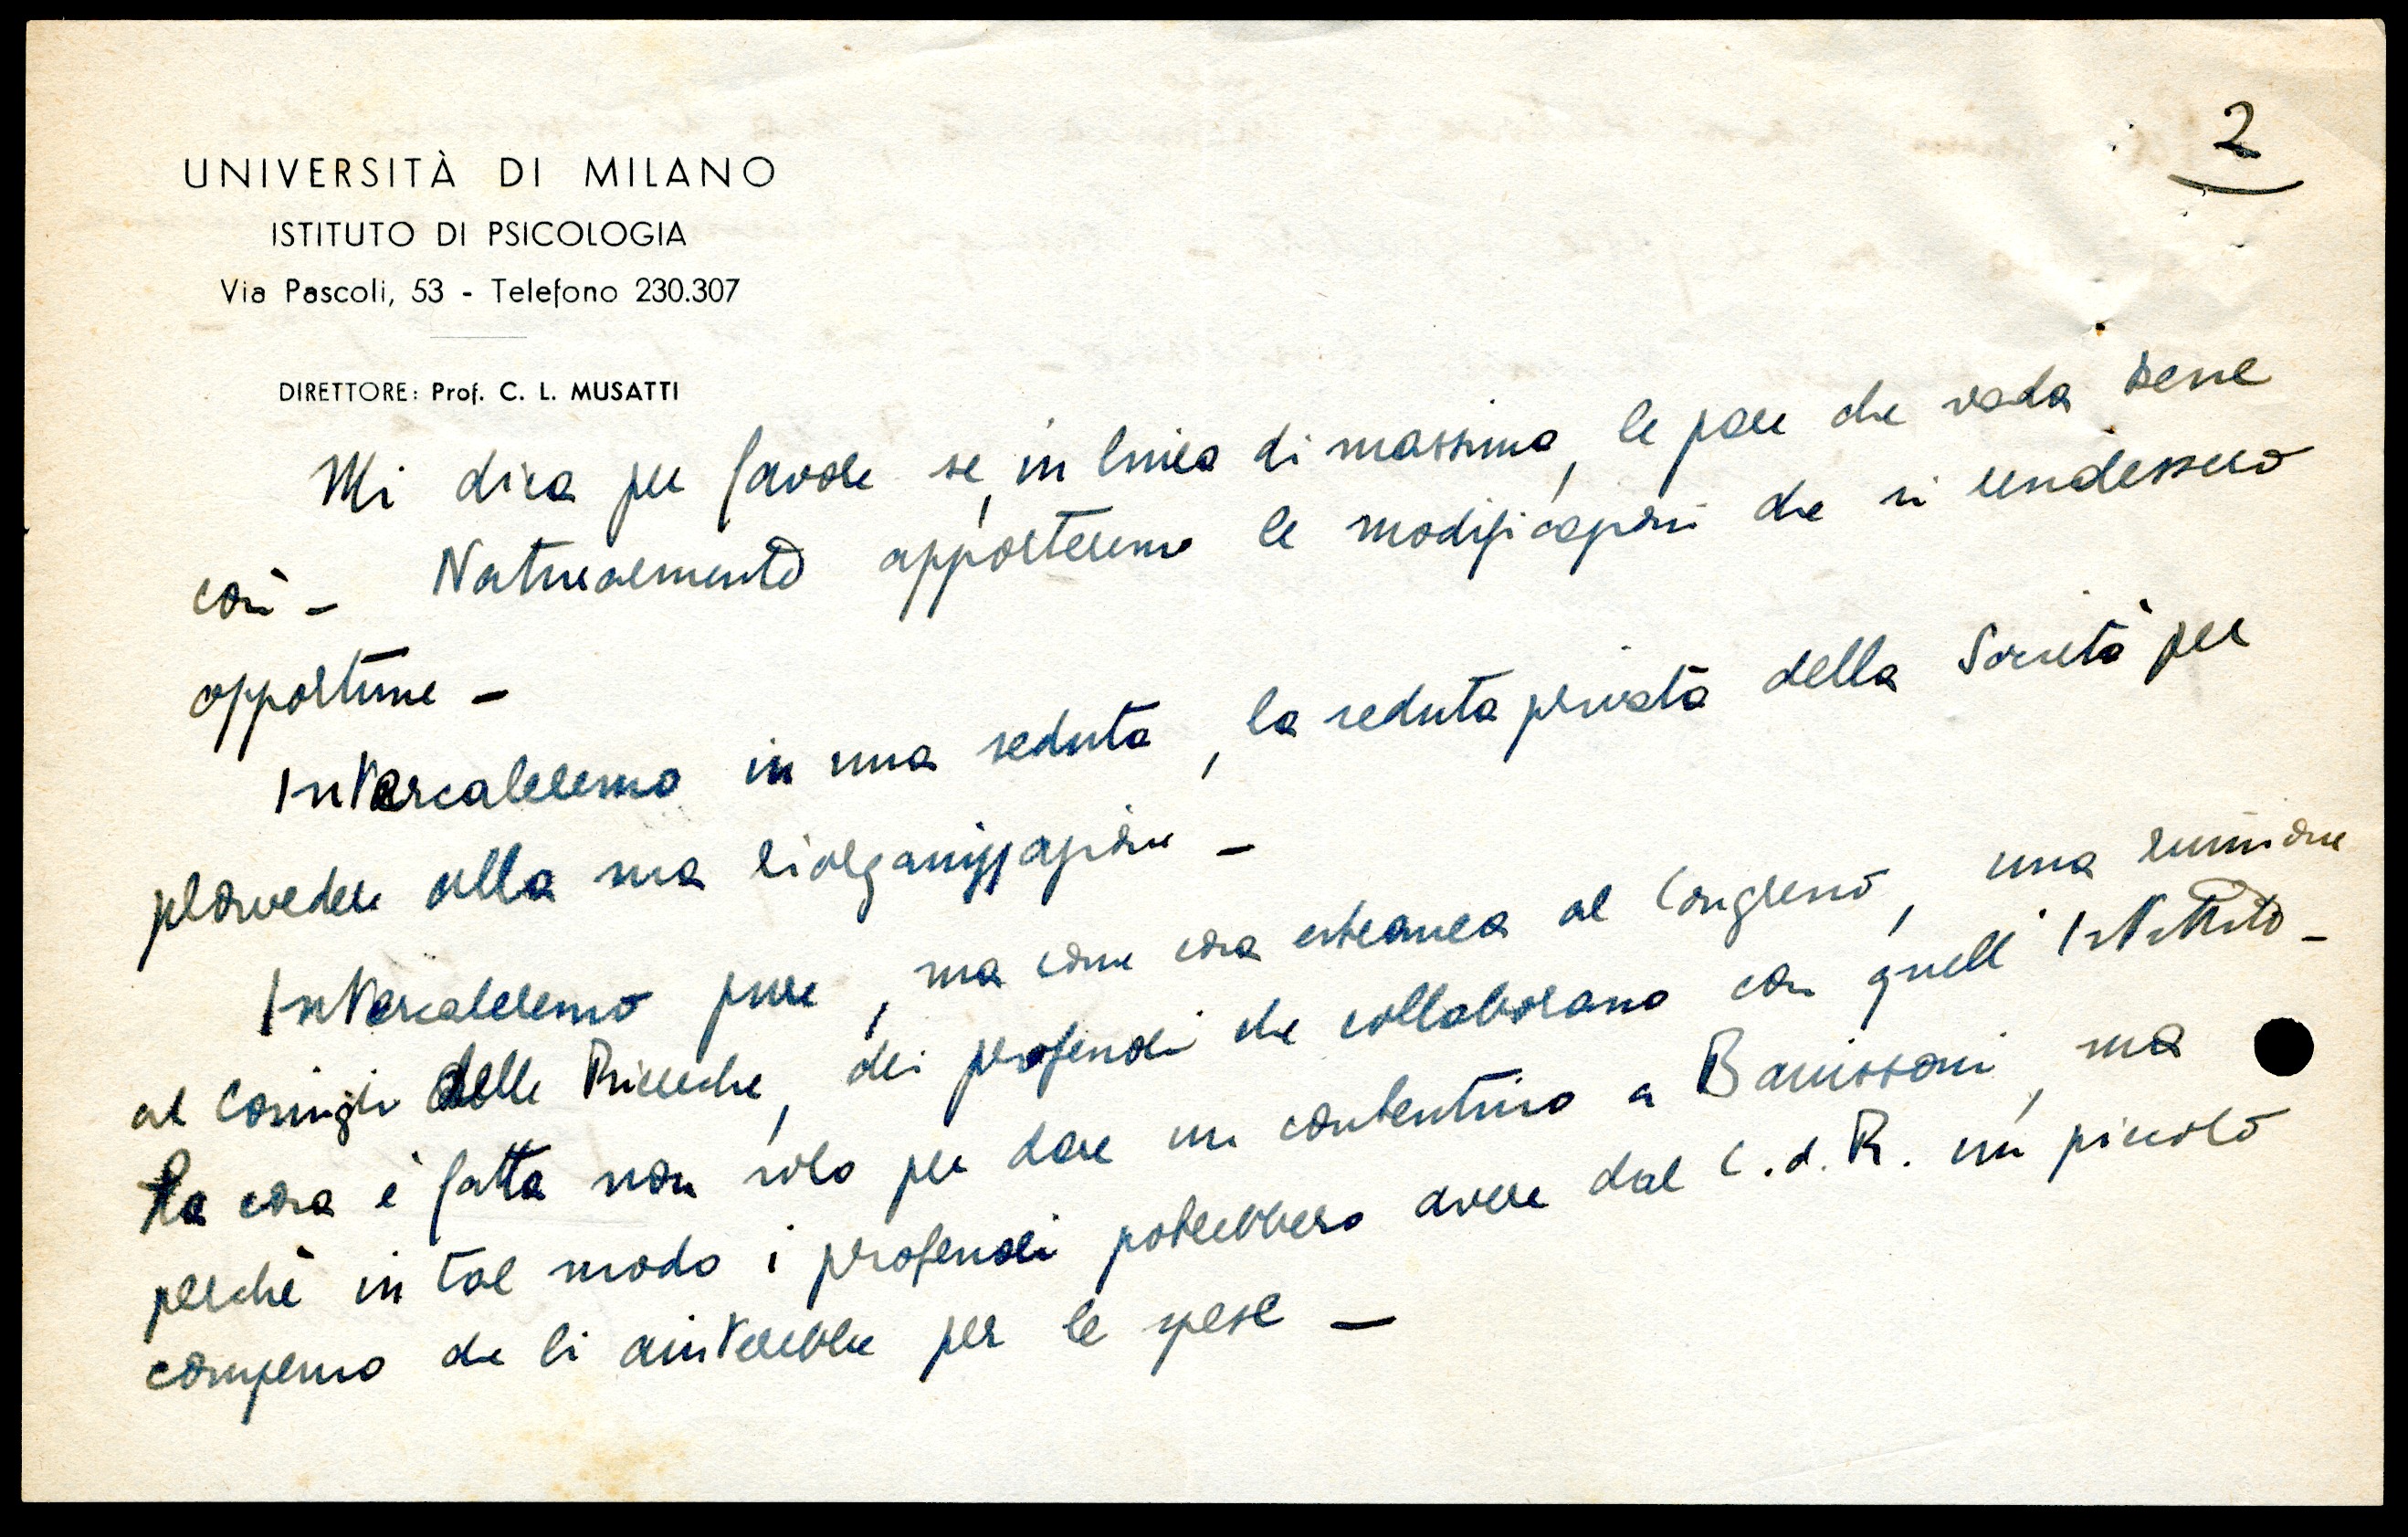 2
UNIVERSITÀ DI MILANO
ISTITUTO DI PSICOLOGIA
Via Pascoli, 53 - Telefono 230.307
DIRETTORE: Prof. C. L. MUSATTI
Mi dica per favore se, in linea di massima, le pare che vada bene
così - Naturalmente apporteremo le modificazioni che si rendessero
opportune -
Intercaleremo in una seduta, la seduta privata della Società per
provvedere alla sua riorganizzazione -
Intercaleremo pure, ma come cosa estranea al Congresso, una riunione
al Consiglio delle Ricerche, dei professori che collaborano con quell'Istituto -
La cosa è fatta non solo per dare un contentino a Banissoni, ma
perchè in tal modo i professori potrebbero avere dal C.d.R. un piccolo
compenso che li aiuterebbe per le spese -